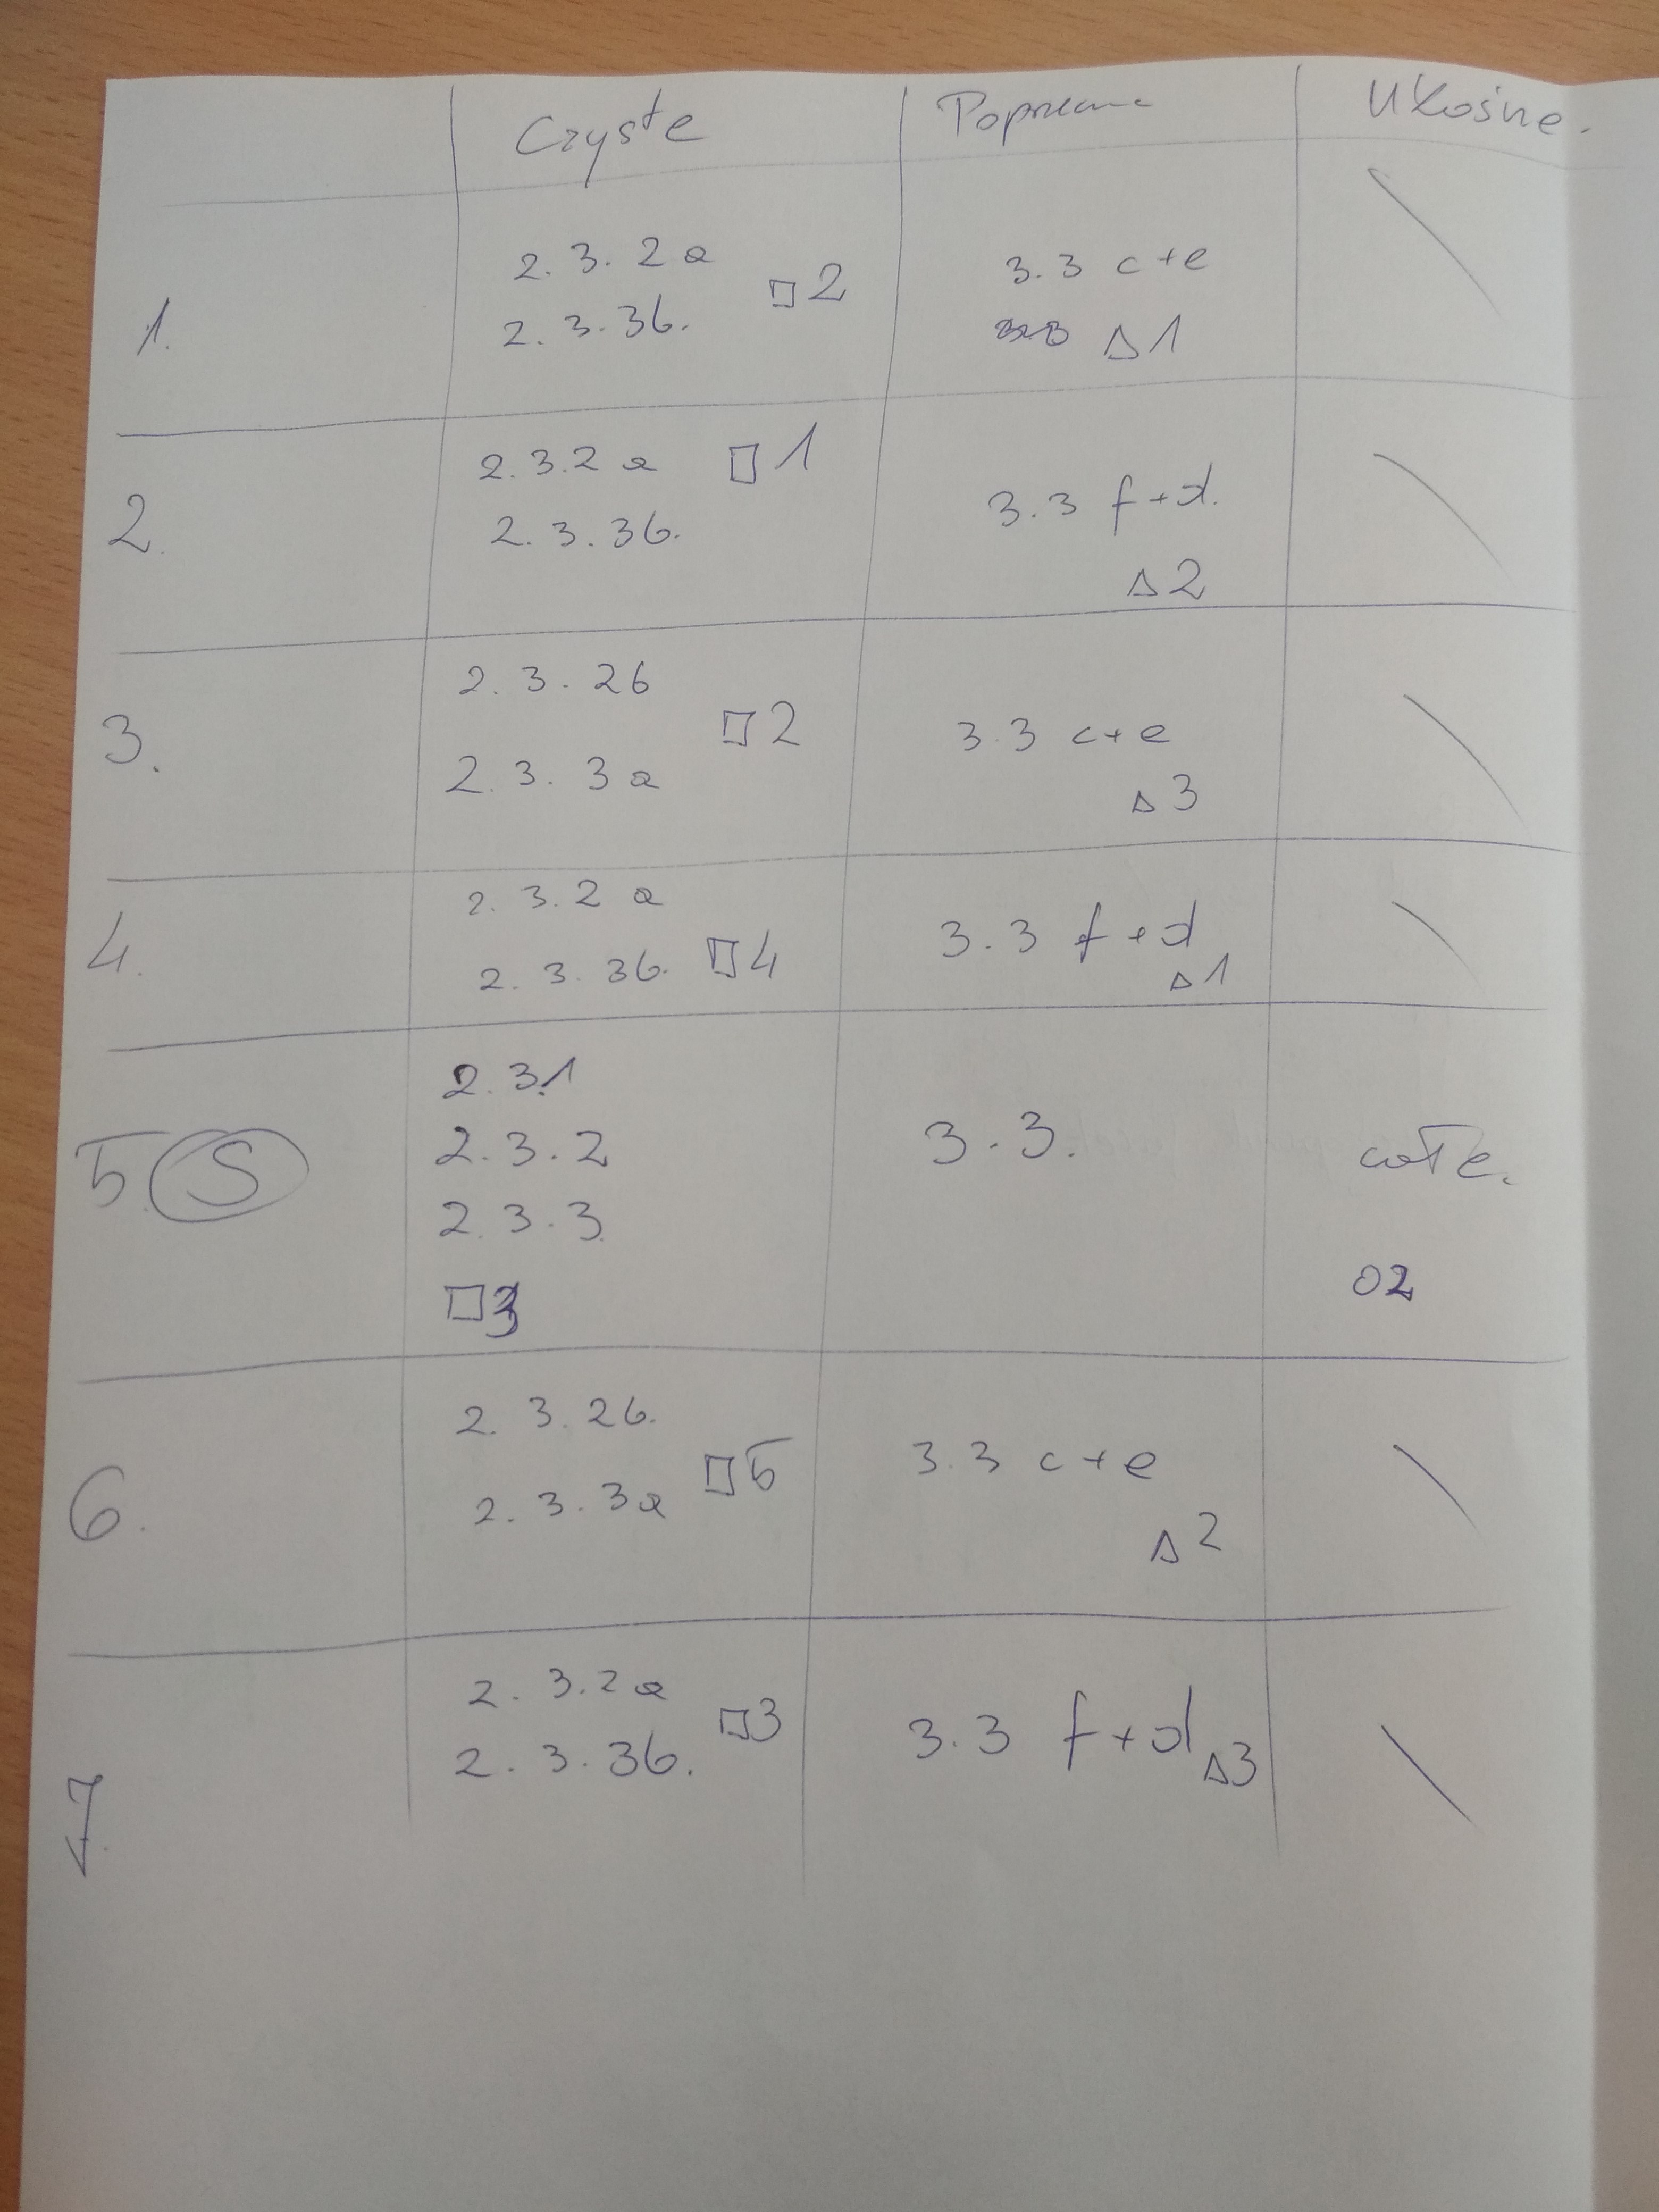 Czyste Poprzeczne Ukośne.
1.
2. 3. 2 a □2
2. 3. 3b.
3. 3 c+e
Δ1
2.
2. 3. 2 a □1
2. 3. 3b.
3. 3 f+d.
Δ2
3.
2. 3. 2b □2
2. 3. 3 a
3. 3 c+e
Δ3
4.
2. 3. 2 a
2. 3. 3b. □4
3. 3 f+d
Δ1
5. S
2. 3.1
2. 3. 2
2. 3. 3
□3
3. 3.
całe.
O2
6.
2. 3. 2b.
2. 3. 3a □5
3. 3 c+e
Δ2
7.
2. 3. 2a □3
2. 3. 3b.
3. 3 f+d Δ3